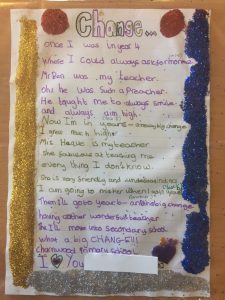 Change...
Once I was in year 4
Where I could always ask for more
Mr Ben was my teacher.
Oh! he was such a Preacher.
He taught me to always smile
and always aim high.
Now I'm in year 5 - amazing big change
I grew much higher
Mrs Heave is my teacher
She is teaching me
every thing I don't know.
She is very friendly and understanding
I am going to miss her when I go in year 6
Then I'll go to year 6 - another big change
having another wonderful teacher
Then I'll move into secondary school
what a big CHANGE!!!
Charnwood Primary School
I You